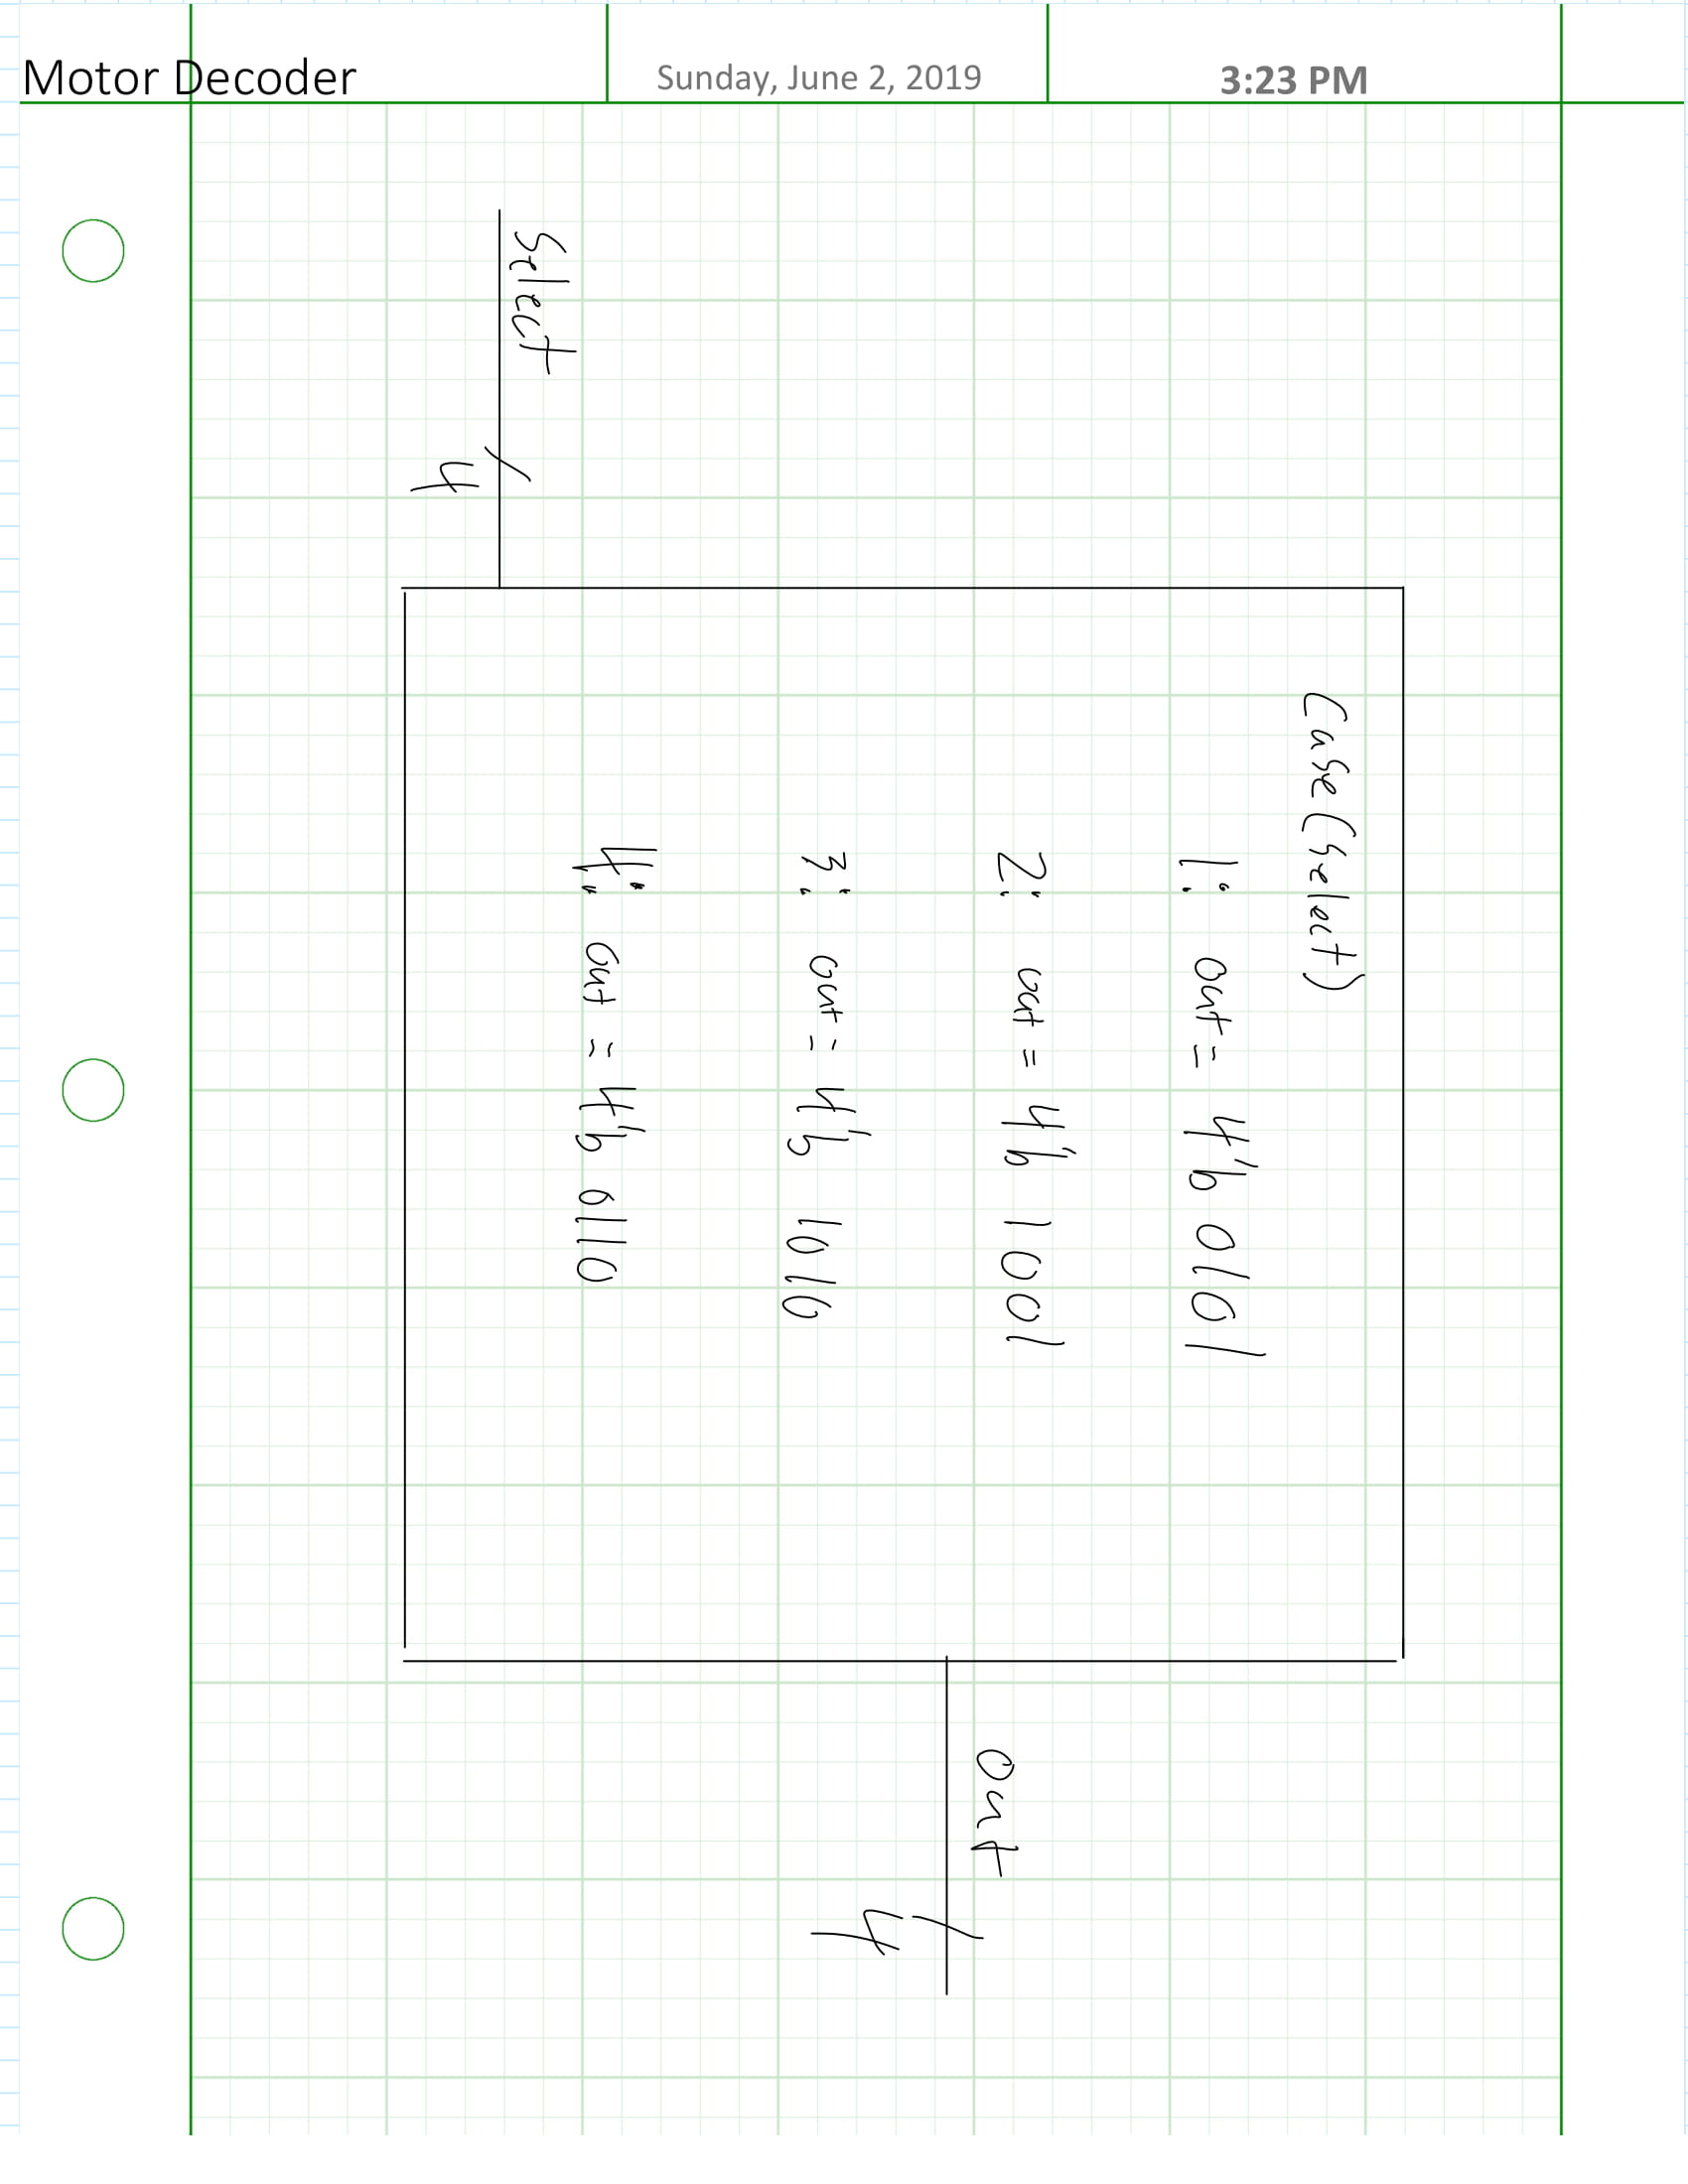 Motor Decoder
Sunday, June 2, 2019
3:23 PM
Case(select)
1: out = 4'b 0101
2: out = 4'b 1001
3: out = 4'b 1010
4: out = 4'b 0110
Select
4
out
4